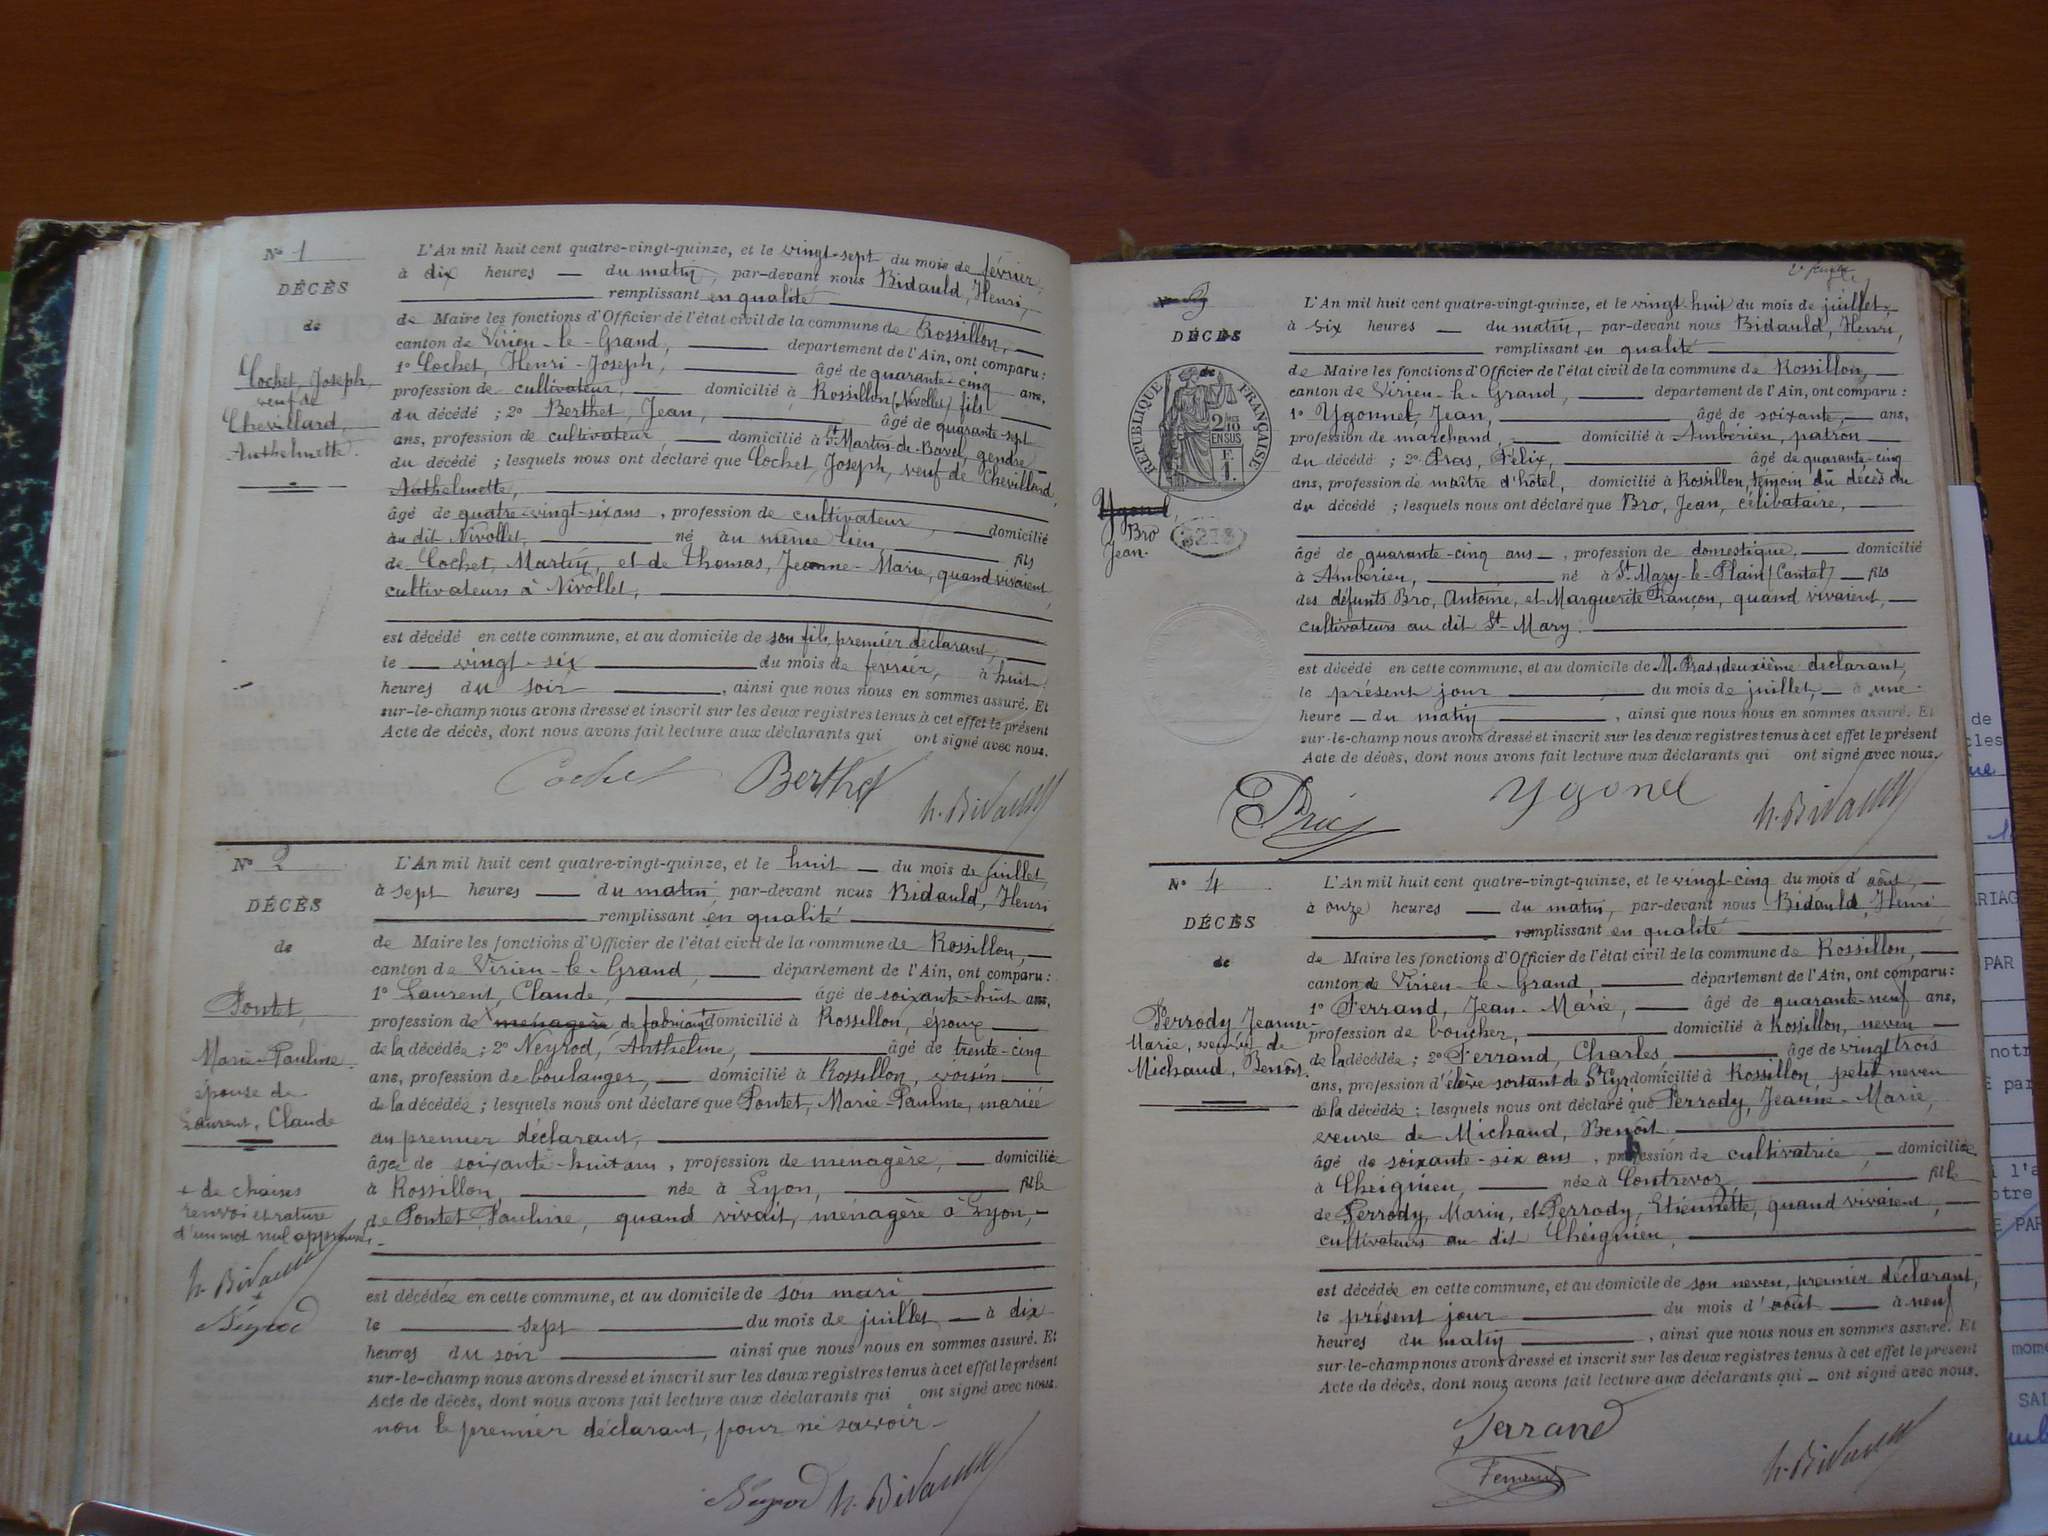 N° 1
DÉCÈS
de
Cochet, Joseph,
veuf de
Chevillard,
Anthelmette.
L'An mil huit cent quatre-vingt-quinze, et le vingt-sept du mois de février,
à dix heures — du matin, par-devant nous Bidauld, Henri,
remplissant en qualité
de Maire les fonctions d'Officier de l'état civil de la commune de Rossillon,
canton de Virieu-le-Grand, département de l'Ain, ont comparu :
1° Cochet, Henri-Joseph, âgé de quarante-cinq ans,
profession de cultivateur, domicilié à Rossillon (Nivollet) fils
du décédé ; 2° Berthet, Jean, âgé de quarante-sept
ans, profession de cultivateur, domicilié à St Martin-de-Bavel, gendre
du décédé ; lesquels nous ont déclaré que Cochet, Joseph, veuf de Chevillard,
Anthelmette,
âgé de quatre-vingt-six ans, profession de cultivateur, domicilié
au dit Nivollet, né au même lieu, fils
de Cochet, Martin, et de Thomas, Jeanne-Marie, quand vivaient,
cultivateurs à Nivollet,
est décédé en cette commune, et au domicile de son fils, premier déclarant,
le — vingt-six du mois de février, à huit
heures du soir, ainsi que nous nous en sommes assuré. Et
sur-le-champ nous avons dressé et inscrit sur les deux registres tenus à cet effet le présent
Acte de décès, dont nous avons fait lecture aux déclarants qui ont signé avec nous.
Cochet Berthet h. Bidauld
N° 2
DÉCÈS
de
Pontet,
Marie-Pauline
épouse de
Laurent, Claude
+ de chaises
renvoi et rature
d'un mot nul approuvés.
h. Bidauld
Neyrod
L'An mil huit cent quatre-vingt-quinze, et le huit — du mois de juillet,
à sept heures — du matin, par-devant nous Bidauld, Henri
remplissant en qualité
de Maire les fonctions d'Officier de l'état civil de la commune de Rossillon,
canton de Virieu-le-Grand, département de l'Ain, ont comparu :
1° Laurent, Claude, âgé de soixante-huit ans,
profession de ménagère de fabricant domicilié à Rossillon, époux
de la décédée ; 2° Neyrod, Anthelme, âgé de trente-cinq
ans, profession de boulanger, domicilié à Rossillon, voisin
de la décédée ; lesquels nous ont déclaré que Pontet, Marie-Pauline, mariée
au premier déclarant,
âgée de soixante-huit ans, profession de ménagère, domiciliée
à Rossillon, née à Lyon, fille
de Pontet, Pauline, quand vivait, ménagère à Lyon,
est décédée en cette commune, et au domicile de son mari
le sept du mois de juillet — à dix
heures du soir ainsi que nous nous en sommes assuré. Et
sur-le-champ nous avons dressé et inscrit sur les deux registres tenus à cet effet le présent
Acte de décès, dont nous avons fait lecture aux déclarants qui ont signé avec nous.
non le premier déclarant, pour ne savoir
Neyrod h. Bidauld
2e feuille
N° 3
DÉCÈS
de
RÉPUBLIQUE FRANÇAISE
2/10 EN SUS
F. 1.
Ygonel,
Bro
Jean.
L'An mil huit cent quatre-vingt-quinze, et le vingt-huit du mois de juillet,
à six heures — du matin, par-devant nous Bidauld, Henri,
remplissant en qualité
de Maire les fonctions d'Officier de l'état civil de la commune de Rossillon,
canton de Virieu-le-Grand, département de l'Ain, ont comparu :
1° Ygonnel, Jean, âgé de soixante, ans,
profession de marchand, domicilié à Ambérieu, patron
du décédé ; 2° Pras, Félix, âgé de quarante-cinq
ans, profession de maître d'hôtel, domicilié à Rossillon, témoin du décès du
du décédé ; lesquels nous ont déclaré que Bro, Jean, célibataire,
âgé de quarante-cinq ans, profession de domestique, domicilié
à Ambérieu, né à St Mary-le-Plain (Cantal) fils
des défunts Bro, Antoine, et Marguerite Françon, quand vivaient,
cultivateurs au dit St Mary.
est décédé en cette commune, et au domicile de M. Pras, deuxième déclarant,
le présent jour du mois de juillet, à une
heure — du matin, ainsi que nous nous en sommes assuré. Et
sur-le-champ nous avons dressé et inscrit sur les deux registres tenus à cet effet le présent
Acte de décès, dont nous avons fait lecture aux déclarants qui ont signé avec nous.
Ygonel h. Bidauld
N° 4
DÉCÈS
de
Perrody, Jeanne-
Marie, veuve de
Michaud, Benoît.
L'An mil huit cent quatre-vingt-quinze, et le vingt-cinq du mois d'août,
à onze heures — du matin, par-devant nous Bidauld, Henri
remplissant en qualité
de Maire les fonctions d'Officier de l'état civil de la commune de Rossillon,
canton de Virieu-le-Grand, département de l'Ain, ont comparu :
1° Ferrand, Jean-Marie, âgé de quarante-neuf ans,
profession de boucher, domicilié à Rossillon, neveu
de la décédée ; 2° Ferrand, Charles âgé de vingt trois
ans, profession d'élève sortant de St Cyr domicilié à Rossillon petit neveu
de la décédée ; lesquels nous ont déclaré que Perrody, Jeanne-Marie,
veuve de Michaud, Benoît
âgé de soixante-six ans, profession de cultivatrice, domiciliée
à Cheignieu, née à Contrevoz, fille
de Perrody, Marin, et Perrody, Etiennette, quand vivaient,
cultivateurs au dit Cheignieu,
est décédée en cette commune, et au domicile de son neveu, premier déclarant,
le présent jour du mois d'août — à neuf
heures du matin, ainsi que nous nous en sommes assuré. Et
sur-le-champ nous avons dressé et inscrit sur les deux registres tenus à cet effet le présent
Acte de décès, dont nous avons fait lecture aux déclarants qui — ont signé avec nous.
Ferrand
Ferrand h. Bidauld